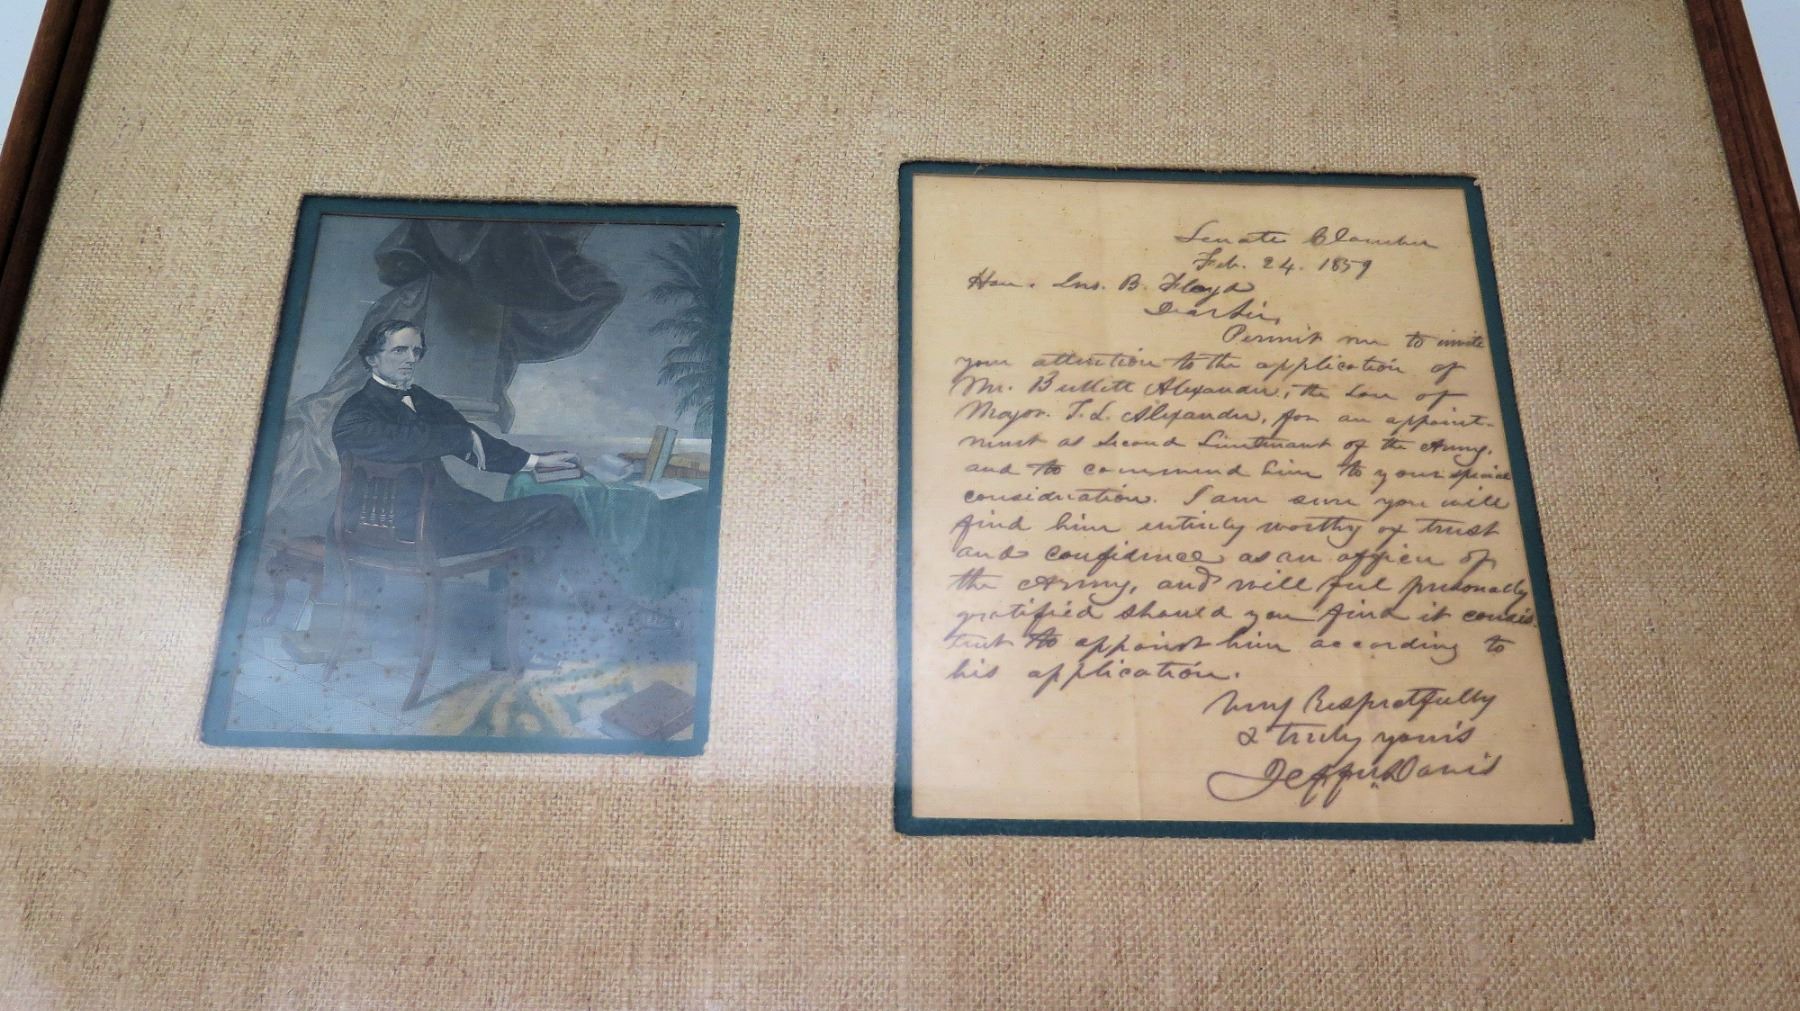 Senate Chamber
Feb. 24. 1859
Hon. Jno. B. Floyd
Dear Sir,
Permit me to invite
your attention to the application of
Mr. Bullitt Alexander, the son of
Major. T. L. Alexander, for an appoint-
ment as Second Lieutenant of the Army,
and to commend him to your special
consideration. I am sure you will
find him entirely worthy of trust
and confidence as an officer of
the Army, and will feel personally
gratified should you find it consis
tent to appoint him according to
his application.
Very Respectfully
& truly yours
Jeffer. Davis